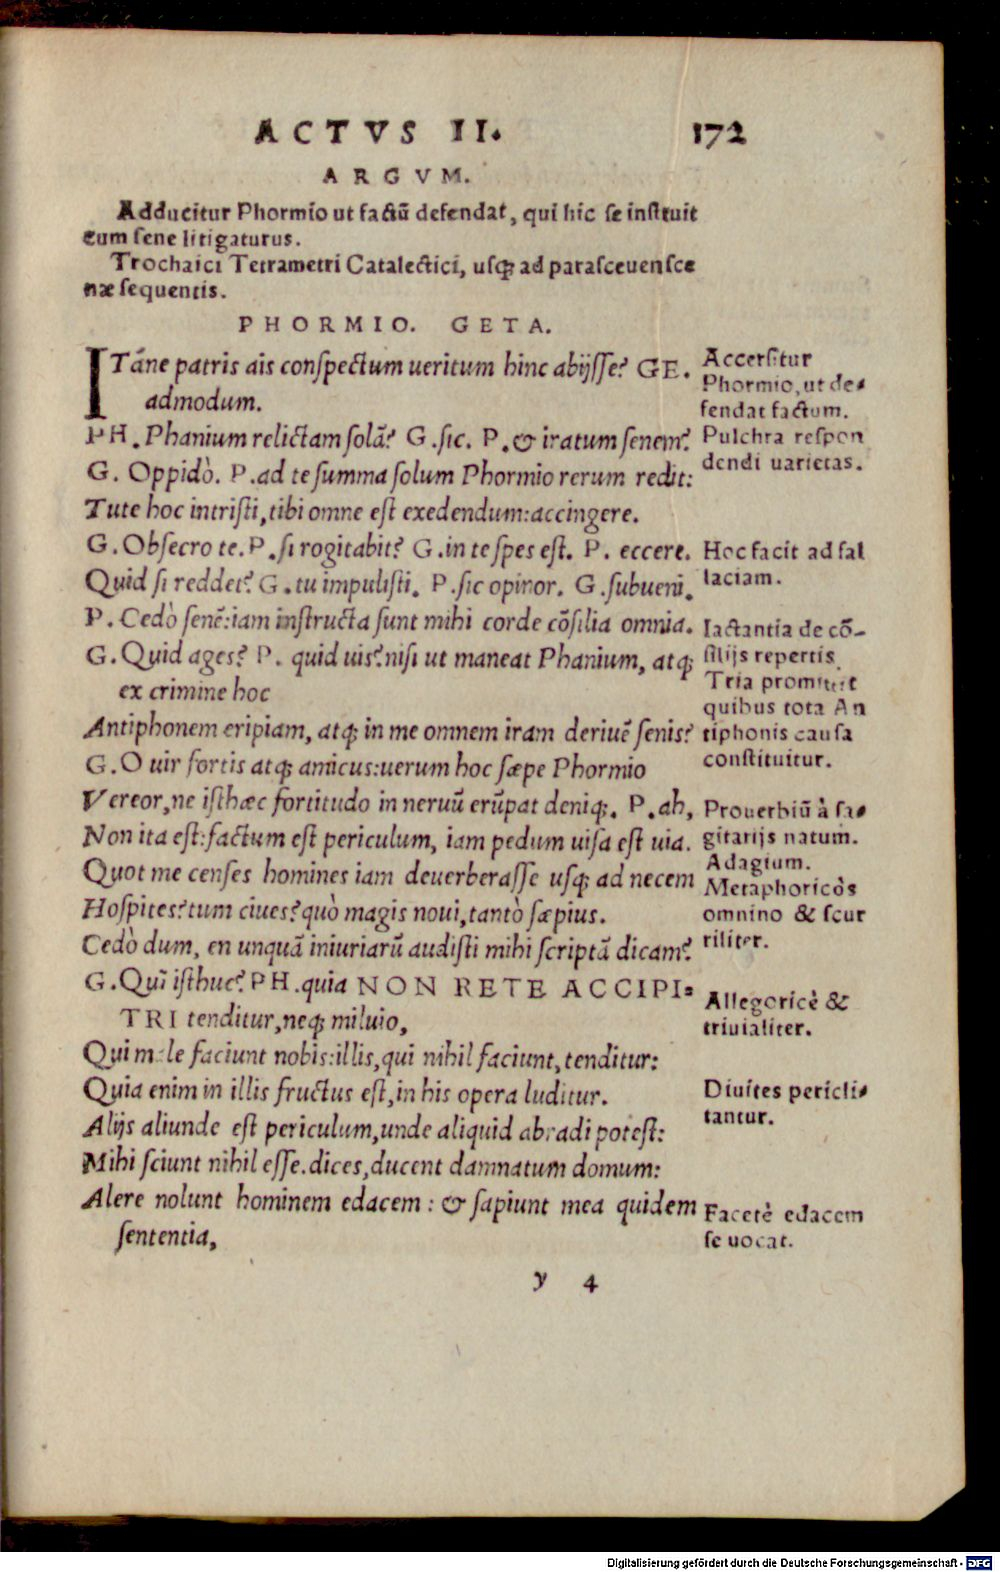 ACTVS II. 172
ARGVM.
Adducitur Phormio ut factũ defendat, qui hic se instruit
cum sene litigaturus.
Trochaici Tetrametri Catalectici, usq; ad parascevensce
næ sequentis.
PHORMIO. GETA.
ITáne patris ais conspectum ueritum hinc abijsse? GE.
admodum.
PH. Phanium relictam solã? G. sic. P. & iratum senem?
G. Oppidò. P. ad te summa solum Phormio rerum redit:
Tute hoc intristi, tibi omne est exedendum: accingere.
G. Obsecro te. P. si rogitabit? G. in te spes est. P. eccere.
Quid si reddet? G. tu impulisti. P. sic opinor. G. subueni.
P. Cedò senẽ: iam instructa sunt mihi corde cõsilia omnia.
G. Quid ages? P. quid uis? nisi ut maneat Phanium, atq;
ex crimine hoc
Antiphonem eripiam, atq; in me omnem iram deriuẽ senis?
G. O uir fortis atq; amicus: uerum hoc sæpe Phormio
Vereor, ne isthæc fortitudo in neruũ erũpat deniq;. P. ah,
Non ita est: factum est periculum, iam pedum uisa est uia.
Quot me censes homines iam deuerberasse usq; ad necem
Hospites? tum ciues? quò magis noui, tantò sæpius.
Cedò dum, en unquã iniuriarũ audisti mihi scriptã dicam?
G. Quĩ isthuc? PH. quia NON RETE ACCIPI=
TRI tenditur, neq; miluio,
Qui male faciunt nobis: illis, qui nihil faciunt, tenditur:
Quia enim in illis fructus est, in his opera luditur.
Alijs aliunde est periculum, unde aliquid abradi potest:
Mihi sciunt nihil esse. dices, ducent damnatum domum:
Alere nolunt hominem edacem: & sapiunt mea quidem
sententia,
y 4
Accersitur
Phormio, ut de=
fendat factum.
Pulchra respon
dendi uarietas.
Hoc facit ad fal
laciam.
Iactantia de cõ-
silijs repertis
Tria promittit
quibus tota An
tiphonis causa
constituitur.
Prouerbiũ à sa=
gitarijs natum.
Adagium.
Metaphoricòs
omnino & scur
riliter.
Allegoricè &
triuialiter.
Diuites pericli=
tantur.
Facetè edacem
se uocat.
Digitalisierung gefördert durch die Deutsche Forschungsgemeinschaft - DFG